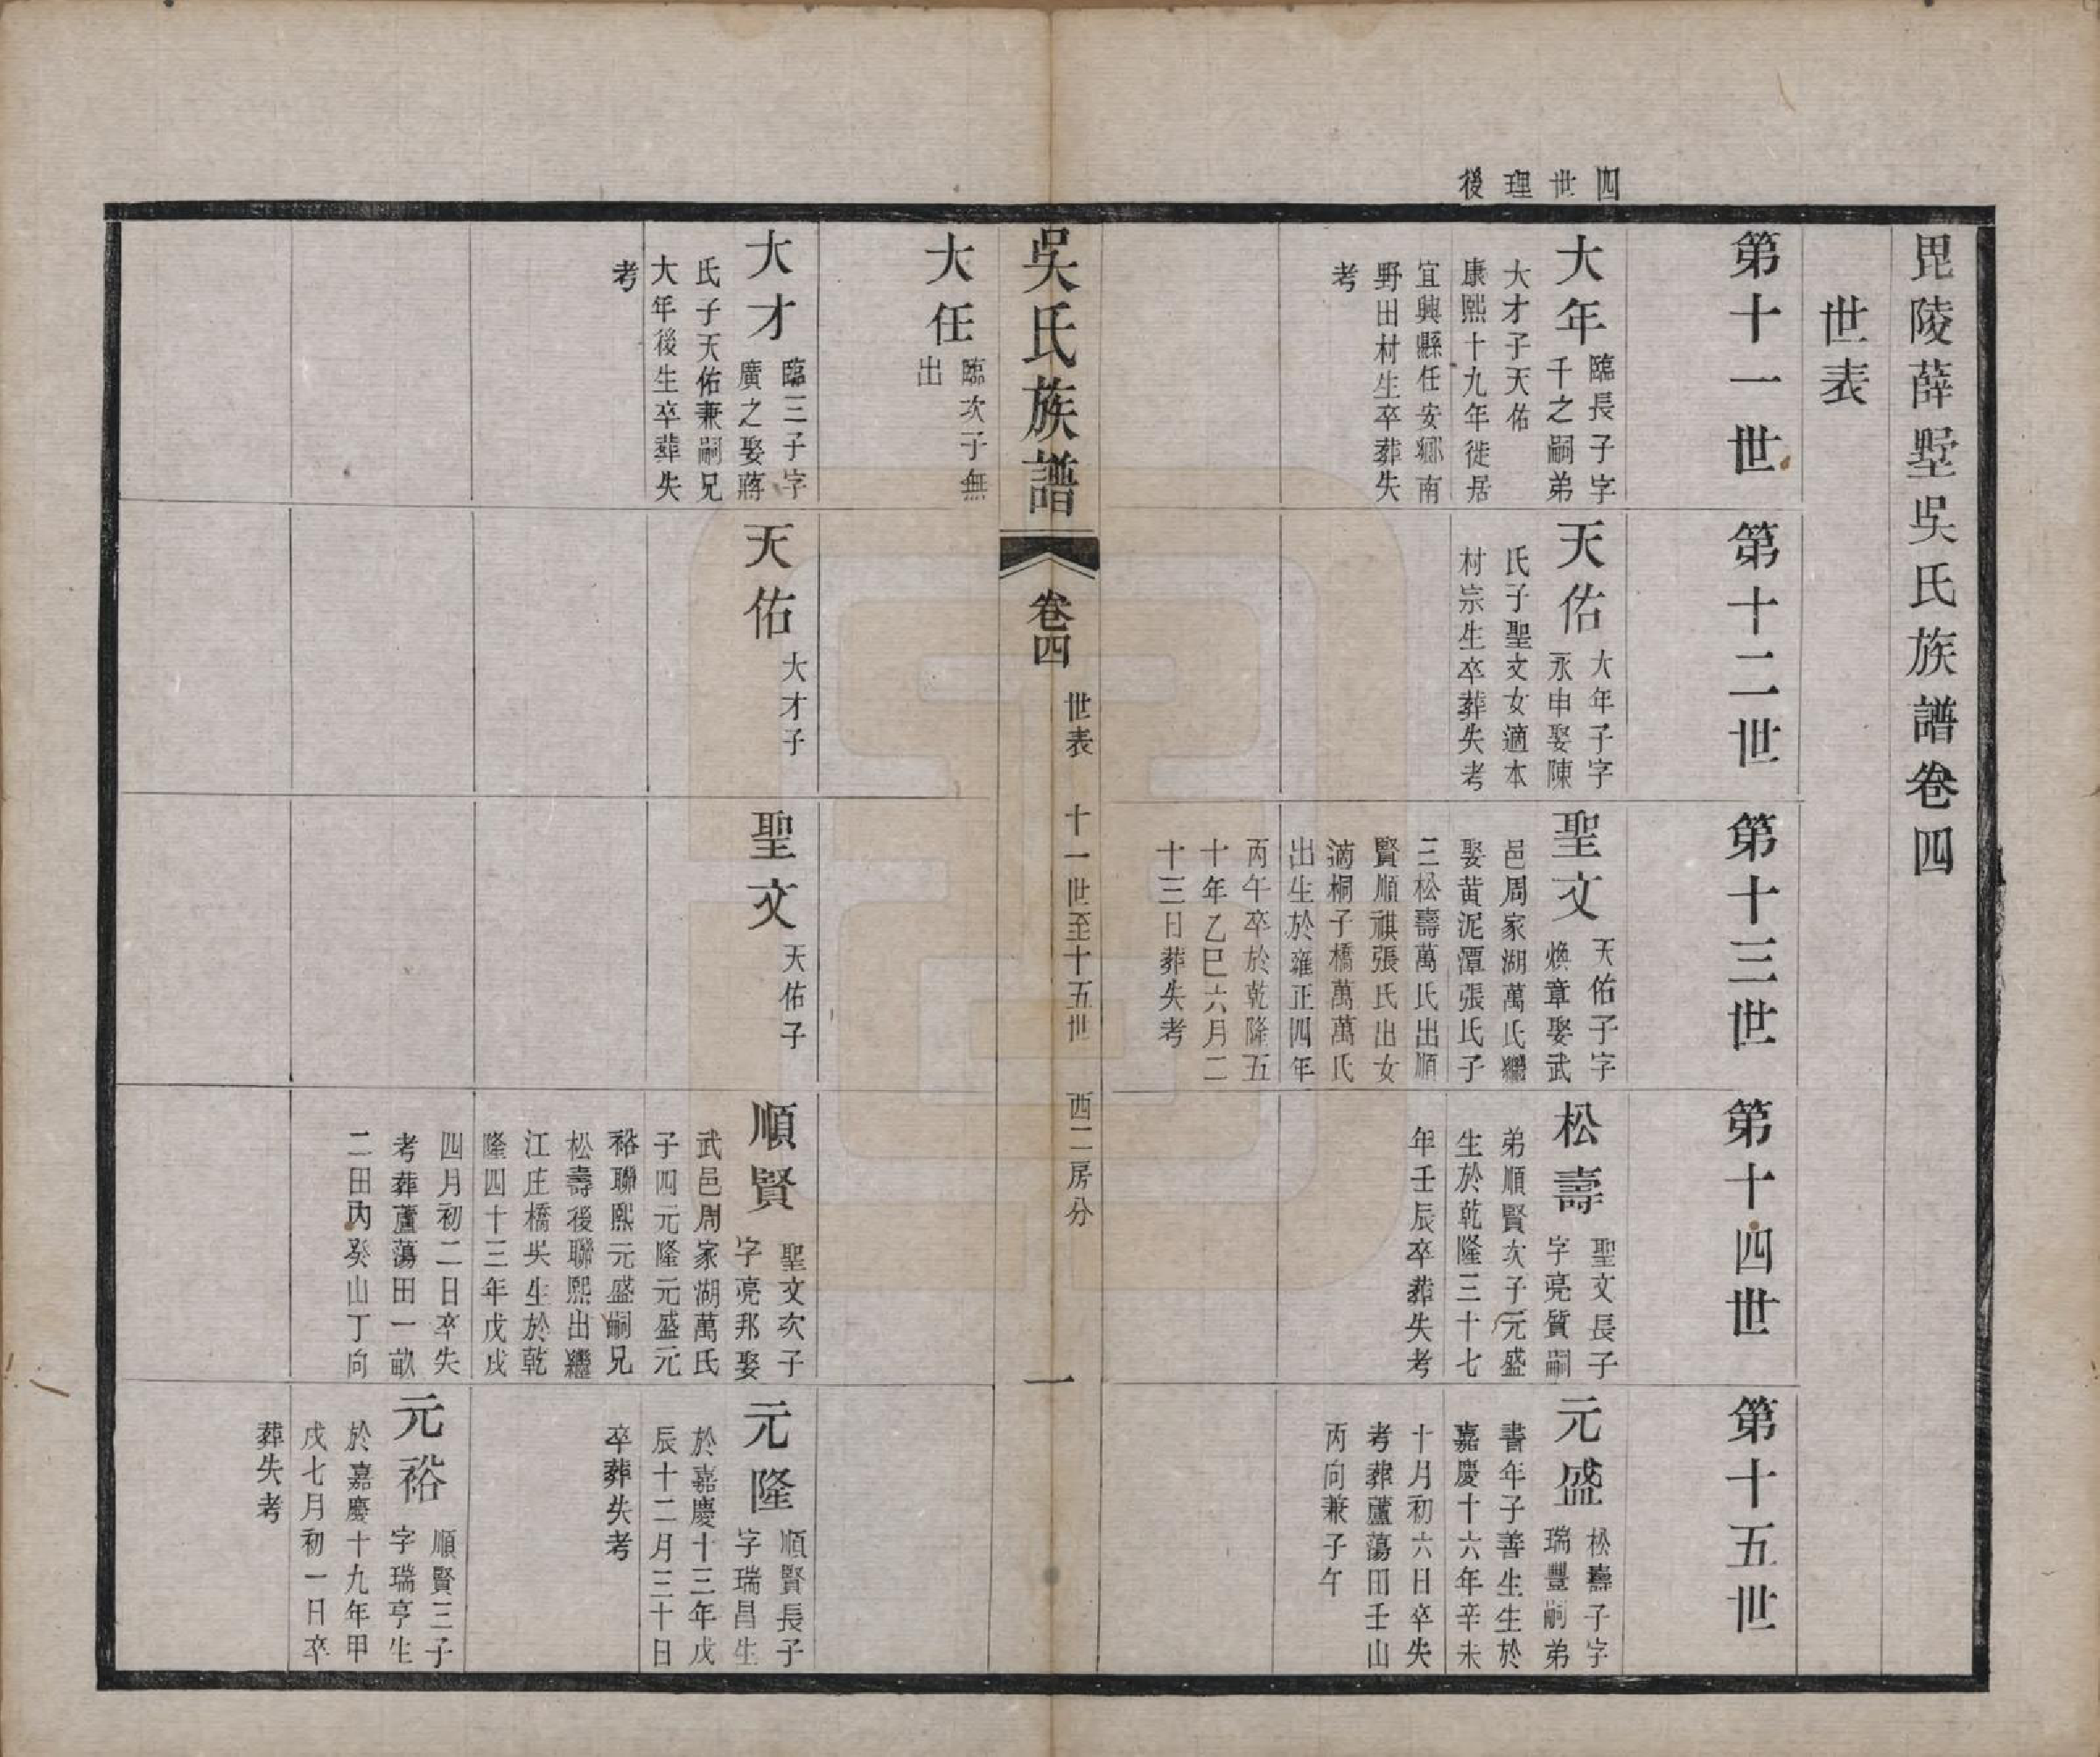 毘陵薛墅吳氏族譜卷四
世表
四世理後
第十一世
大年
臨長子字
千之嗣弟
大才子天佑
康熙十九年徙居
宜興縣任安鄉南
野田村生卒葬失
考
第十二世
天佑
大年子字
永申娶陳
氏子聖文女適本
村宗生卒葬失考
第十三世
聖文
天佑子字
煥章娶武
邑周家湖萬氏繼
娶黃泥潭張氏子
三松壽萬氏出順
賢順祺張氏出女
適桐子橋萬萬氏
出生於雍正四年
丙午卒於乾隆五
十年乙巳六月二
十三日葬失考
第十四世
松壽
聖文長子
字亮質嗣
弟順賢次子元盛
生於乾隆三十七
年壬辰卒葬失考
第十五世
元盛
松壽子字
瑞豐嗣弟
書年子善生生於
嘉慶十六年辛未
十月初六日卒失
考葬蘆蕩田壬山
丙向兼子午
吳氏族譜
卷四
世表
十一世至十五世
西二房分
一
大任
臨次子無
出
大才
臨三子字
廣之娶蔣
氏子天佑兼嗣兄
大年後生卒葬失
考
天佑
大才子
聖文
天佑子
順賢
聖文次子
字亮邦娶
武邑周家湖萬氏
子四元隆元盛元
裕聯熙元盛嗣兄
松壽後聯熙出繼
江庄橋吳生於乾
隆四十三年戊戌
四月初二日卒失
考葬蘆蕩田一畝
二田內癸山丁向
元隆
順賢長子
字瑞昌生
於嘉慶十三年戊
辰十二月三十日
卒葬失考
元裕
順賢三子
字瑞亨生
於嘉慶十九年甲
戌七月初一日卒
葬失考